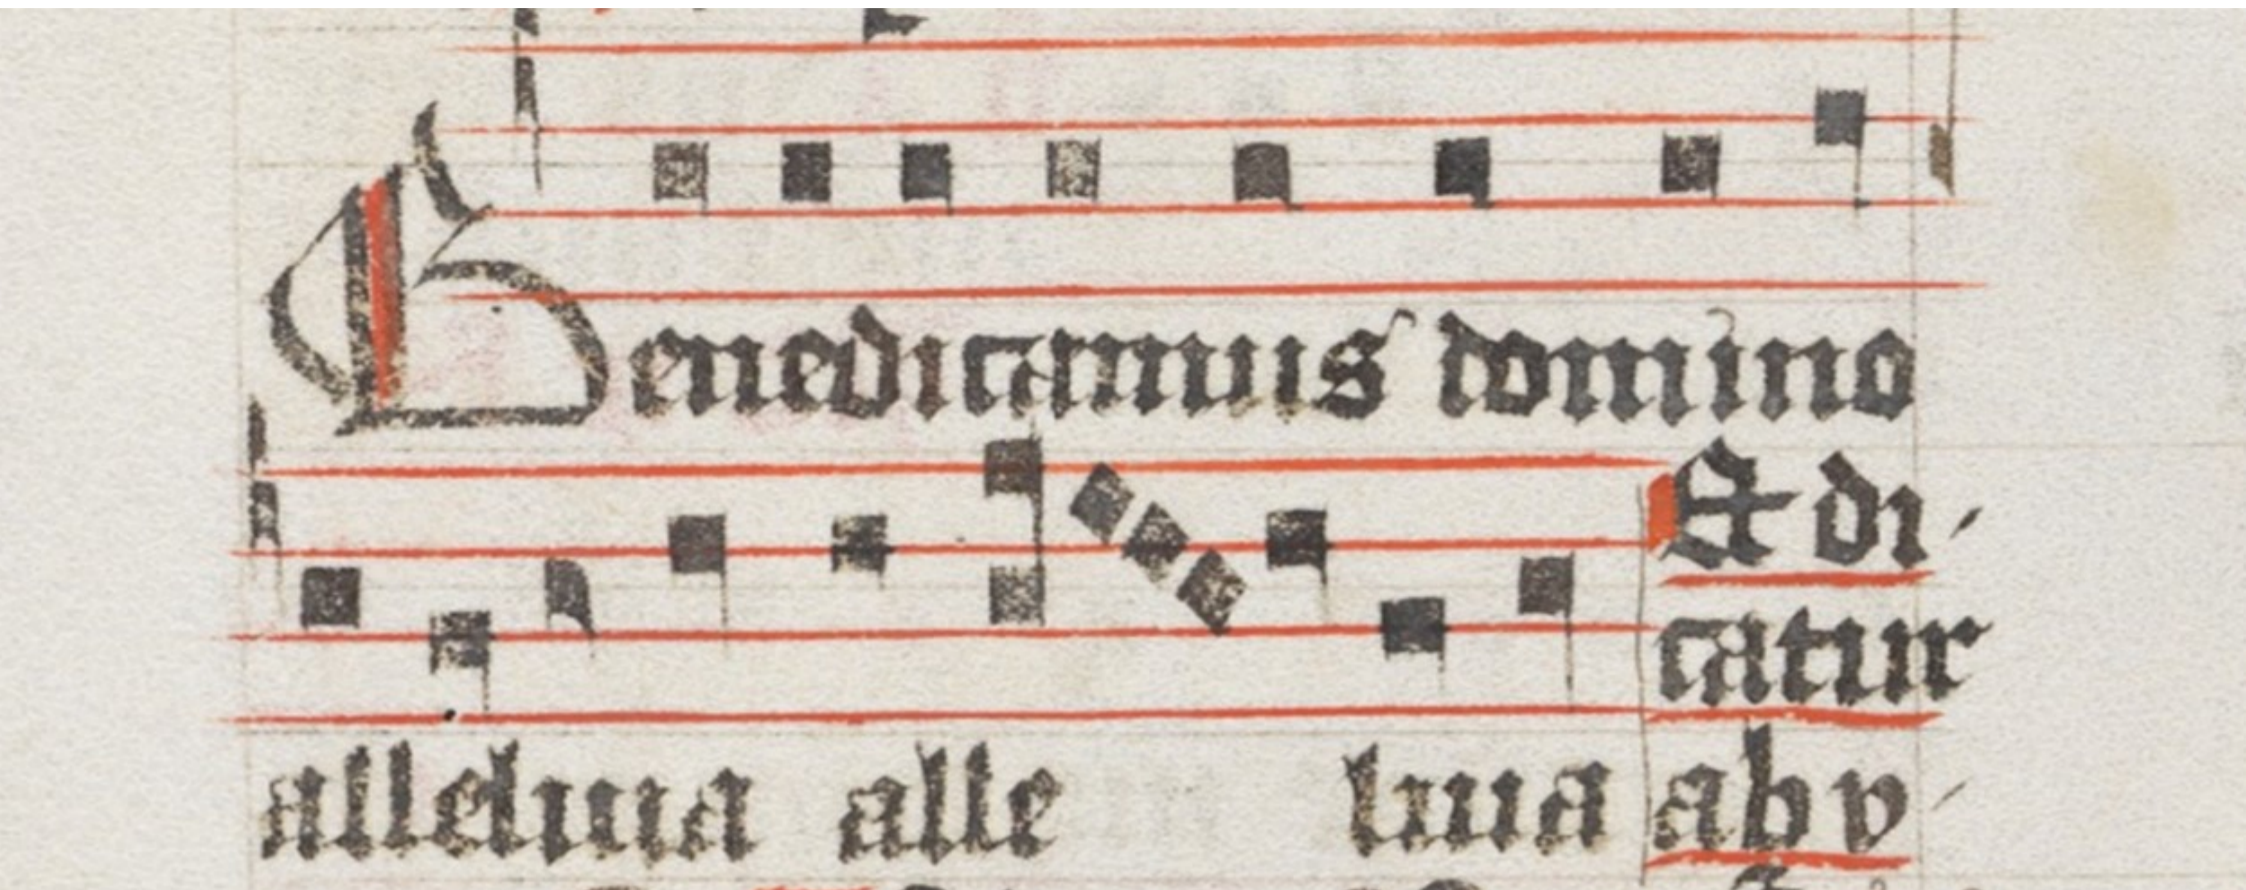 Benedicamus domino
alleluia alle luia
Et di-
catur
ab v-